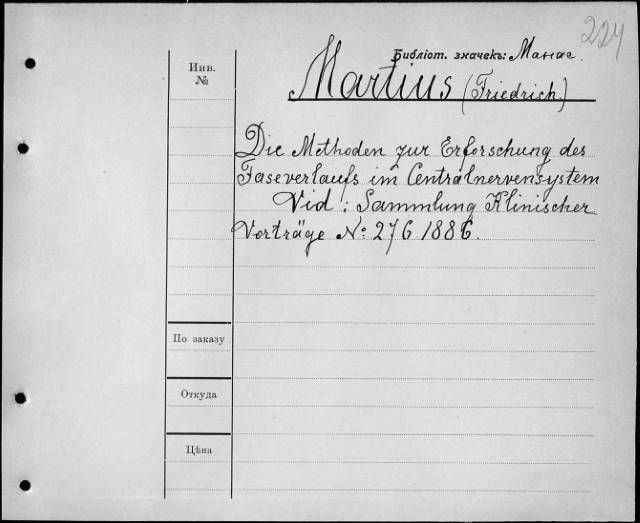 224
Библіот. значекъ: Манас.
Инв.
№
Martius (Friedrich)
Die Methoden zur Erforschung des
Faseverlaufs im Centralnervensystem
Vid: Sammlung Klinischer
Vorträge No: 276 1886.
По заказу
Откуда
Цѣна